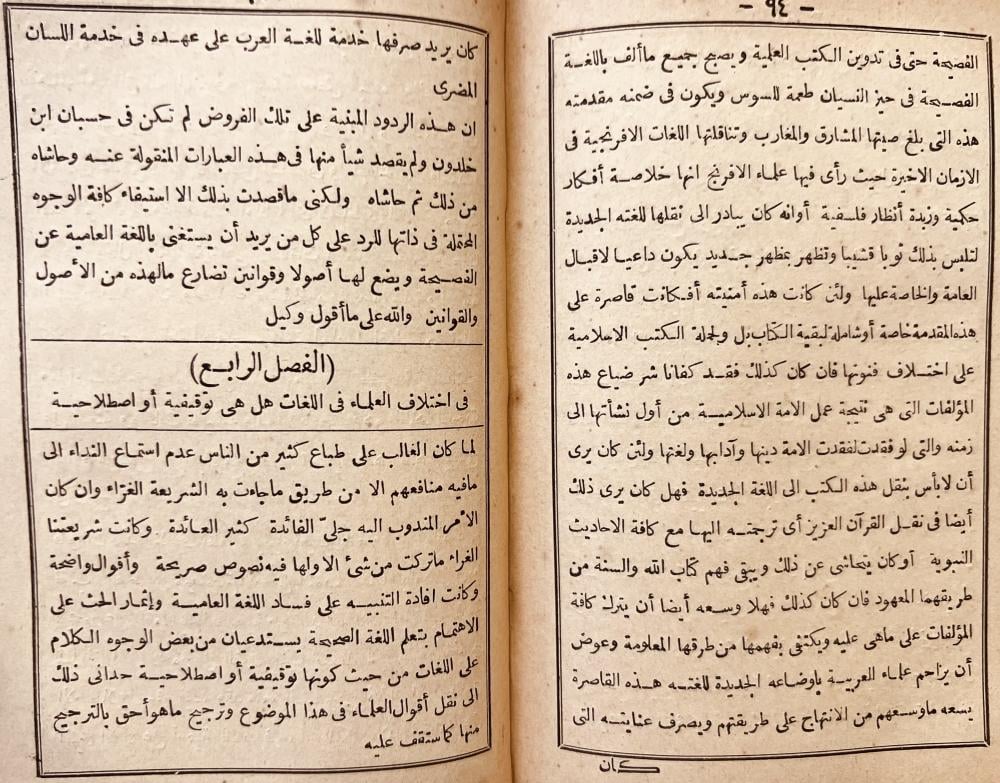 - ٩٤ -
الفصيحة حتى فى تدوين الكتب العلمية ويصبح جميع ماألف باللغـة
الفصـيحة فى حيز النسيان طعمة للسوس ويكون فى ضمنه مقدمته
هذه التى بلغ صيتها المشارق والمغارب وتناقلتها اللغات الافرنجية فى
الازمان الاخيرة حيث رأى فيها علماء الافرنج انها خلاصة أفكار
حكمية وزبدة أنظار فلسفية أوانه كان يبادر الى نقلها للغته الجديدة
لتلبس بذلك ثوبا قشيبا وتظهر بمظهر جديد يكون داعيا لاقبال
العامة والخاصة عليها ولئن كانت هذه أمنيته أفكانت قاصرة على
هذه المقدمة خاصة أوشاملة لبقية الكتاب بل ولجملة الكتب الاسلامية
على اختـلاف فنونها فان كان كذلك فقـد كفانا شر ضياع هذه
المؤلفات التى هى نتيجة عمل الامة الاسلاميـة من أول نشأتها الى
زمنه والتى لو فقدت لفقدت الامة دينها وآدابها ولغتها ولئن كان يرى
أن لابأس بنقل هذه الكتب الى اللغة الجديدة فهل كان يرى ذلك
أيضا فى نقـل القرآن العزيز أى ترجمتـه اليها مع كافة الاحاديث
النبوية أوكان يتحاشى عن ذلك ويبقى فهم كتاب الله والسنة من
طريقهما المعهود فان كان كذلك فهلا وسعه أيضا أن يترك كافة
المؤلفات على ماهى عليه ويكتفى بفهمها من طرقها المعلومة وعوض
أن يزاحم علماء العربيـة باوضاعه الجديدة للغتـه هـذه القاصرة
يسعه ماوسـعهم من الانتهاج على طريقتهم ويصرف عنايتـه التى
كان
كان يريد صرفها خدمة للغـة العرب على عهـده فى خدمة اللسان
المضرى
ان هـذه الردود المبنية على تلك الفروض لم تكن فى حسبان ابن
خلدون ولم يقصد شيأ منها فى هـذه العبارات المنقولة عنـه وحاشاه
من ذلك ثم حاشاه ولكنى ماقصدت بذلك الا استيفاء كافة الوجوه
المحتملة فى ذاتها للرد على كل من يريد أن يستغنى باللغة العامية عن
الفصـيحة ويضع لهـا أصولا وقوانين تضارع مالهذه من الأصول
والقوانين والله على ماأقول وكيل
(الفصل الرابـع)
فى اختلاف العلماء فى اللغات هل هى توقيفية أو اصطلاحيـة
لما كان الغالب على طباع كثير من الناس عدم استماع النداء الى
مافيه منافعهم الا من طريق ماجاءت به الشريعة الغرّاء وان كان
الأمر المندوب اليه جلىّ الفائدة كثير العـائدة وكانت شريعتنا
الغراء ماتركت من شئ الا ولها فيه نصوص صريحة وأقوال واضحة
وكانت افادة التنبيـه على فسـاد اللغة العاميـة وإثمار الحث على
الاهتمام بتعلم اللغة الصحيحة يسـتدعيان من بعض الوجوه الكلام
على اللغات من حيث كونها توقيفية أو اصطلاحيـة حدانى ذلك
الى نقل أقوال العلماء فى هذا الموضوع وترجيح ماهو أحق بالترجيح
منها كما ستقف عليه